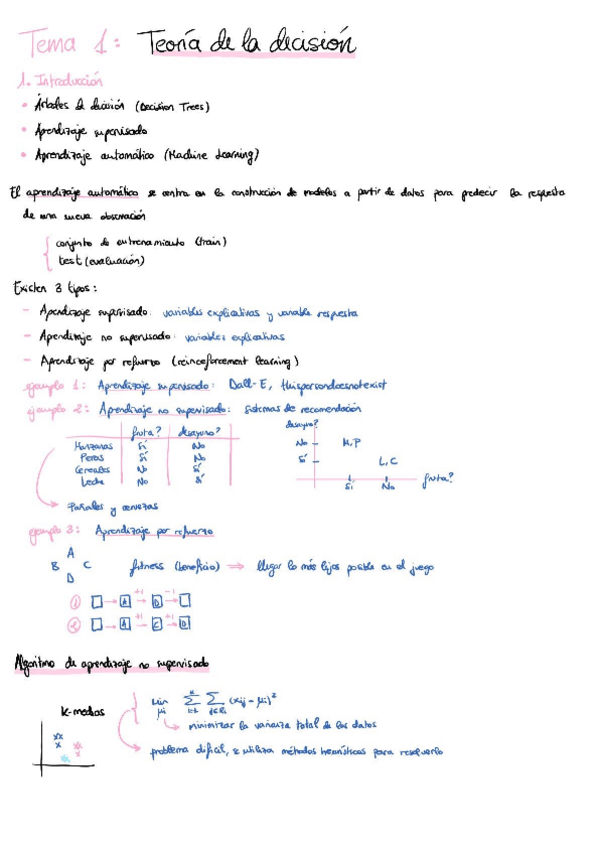 Tema 1: Teoría de la decisión
1. Introducción
• Árboles de decisión (Decision Trees)
• Aprendizaje supervisado
• Aprendizaje automático (Machine Learning)
El aprendizaje automático se centra en la construcción de modelos a partir de datos para predecir la respuesta
de una nueva observación
conjunto de entrenamiento (train)
test (evaluación)
Existen 3 tipos:
- Aprendizaje supervisado: variables explicativas y variable respuesta
- Aprendizaje no supervisado: variables explicativas
- Aprendizaje por refuerzo (reinceforcement learning)
ejemplo 1: Aprendizaje supervisado: Dall-E, thispersondoesnotexist
ejemplo 2: Aprendizaje no supervisado: sistemas de recomendación
fruta? desayuno?
Manzanas Sí No
Peras Sí No
Cereales No Sí
Leche No Sí
desayuno?
No M,P
Sí L,C
Sí No fruta?
Pañales y cervezas
ejemplo 3: Aprendizaje por refuerzo
A
B C
D
fitness (beneficio) ⇒ llegar lo más lejos posible en el juego
① □ → A +1 → D -1 → □
② □ → A +1 → C +1 → D
Algoritmo de aprendizaje no supervisado
K-medias
Min μi Σ Σ (xij - μi)²
minimizar la varianza total de los datos
problema difícil, se utiliza métodos heurísticos para resolverlo